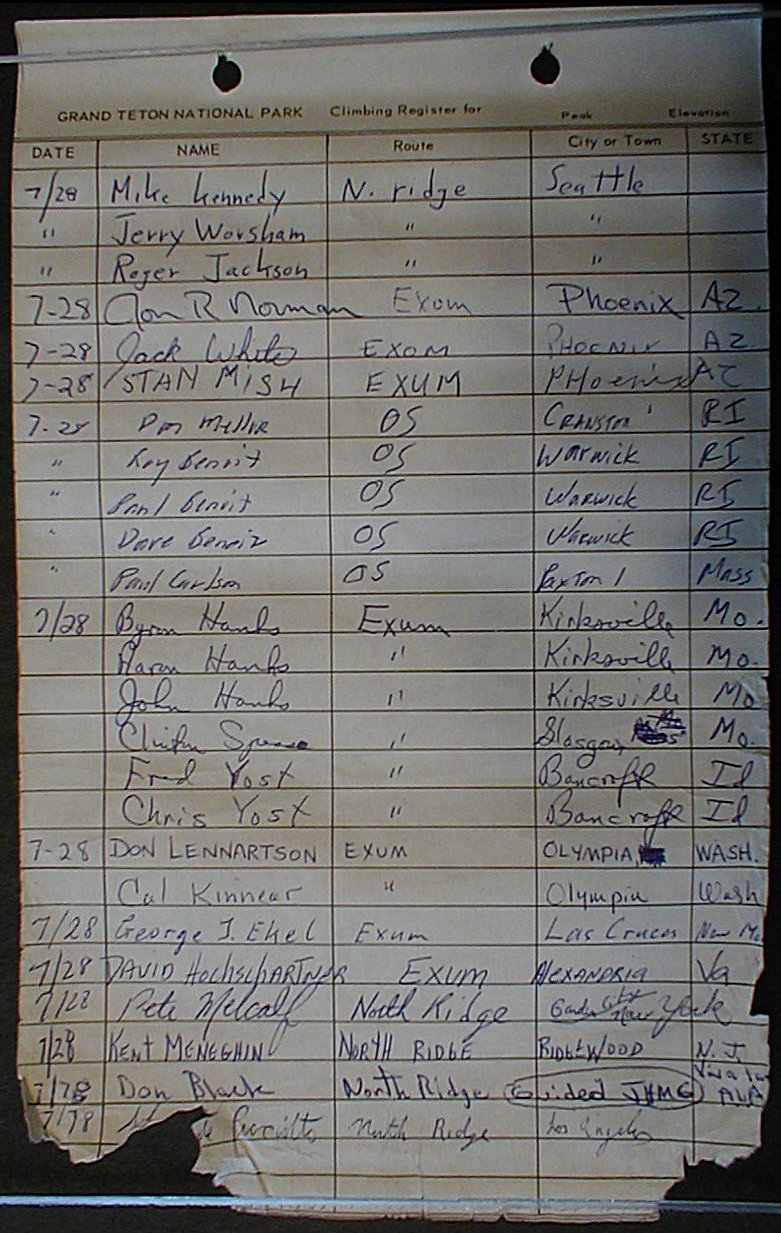 GRAND TETON NATIONAL PARK Climbing Register for Peak Elevation
DATE NAME Route City or Town STATE
7/28 Mike Kennedy N. ridge Seattle
" Jerry Worsham " "
" Roger Jackson " "
7-28 R Norman Exom Phoenix AZ.
7-28 Jack White EXOM PHOENIX AZ
7-28 STAN MISH EXUM PHoenix AZ
7-28 Miller OS CRANSTON RI
" Ray Benoit OS Warwick RI
" Paul Benoit OS Warwick RI
" Dave Benoit OS Warwick RI
" Paul Carlson OS Paxton Mass
7/28 Byron Hanks Exum Kirksville Mo.
Aaron Hanks " Kirksville Mo.
John Hanks " Kirksville Mo
Clinton " Glasgow, Mo.
Fred Yost " Bancroft Id
Chris Yost " Bancroft Id
7-28 DON LENNARTSON EXUM OLYMPIA, WASH.
Cal Kinnear " Olympia Wash
7/28 George J. Ehel Exum Las Cruces New Mo
7/28 DAVID HOCHSCHARTNER EXUM ALEXANDRIA Va
7/28 Pete Metcalf North Ridge Garden City New York
7/28 KENT MENEGHIN NORTH RIDGE RIDGEWOOD N.J.
7/78 Don Black North Ridge (Guided JHMG)
7/78 North Ridge Los Angeles